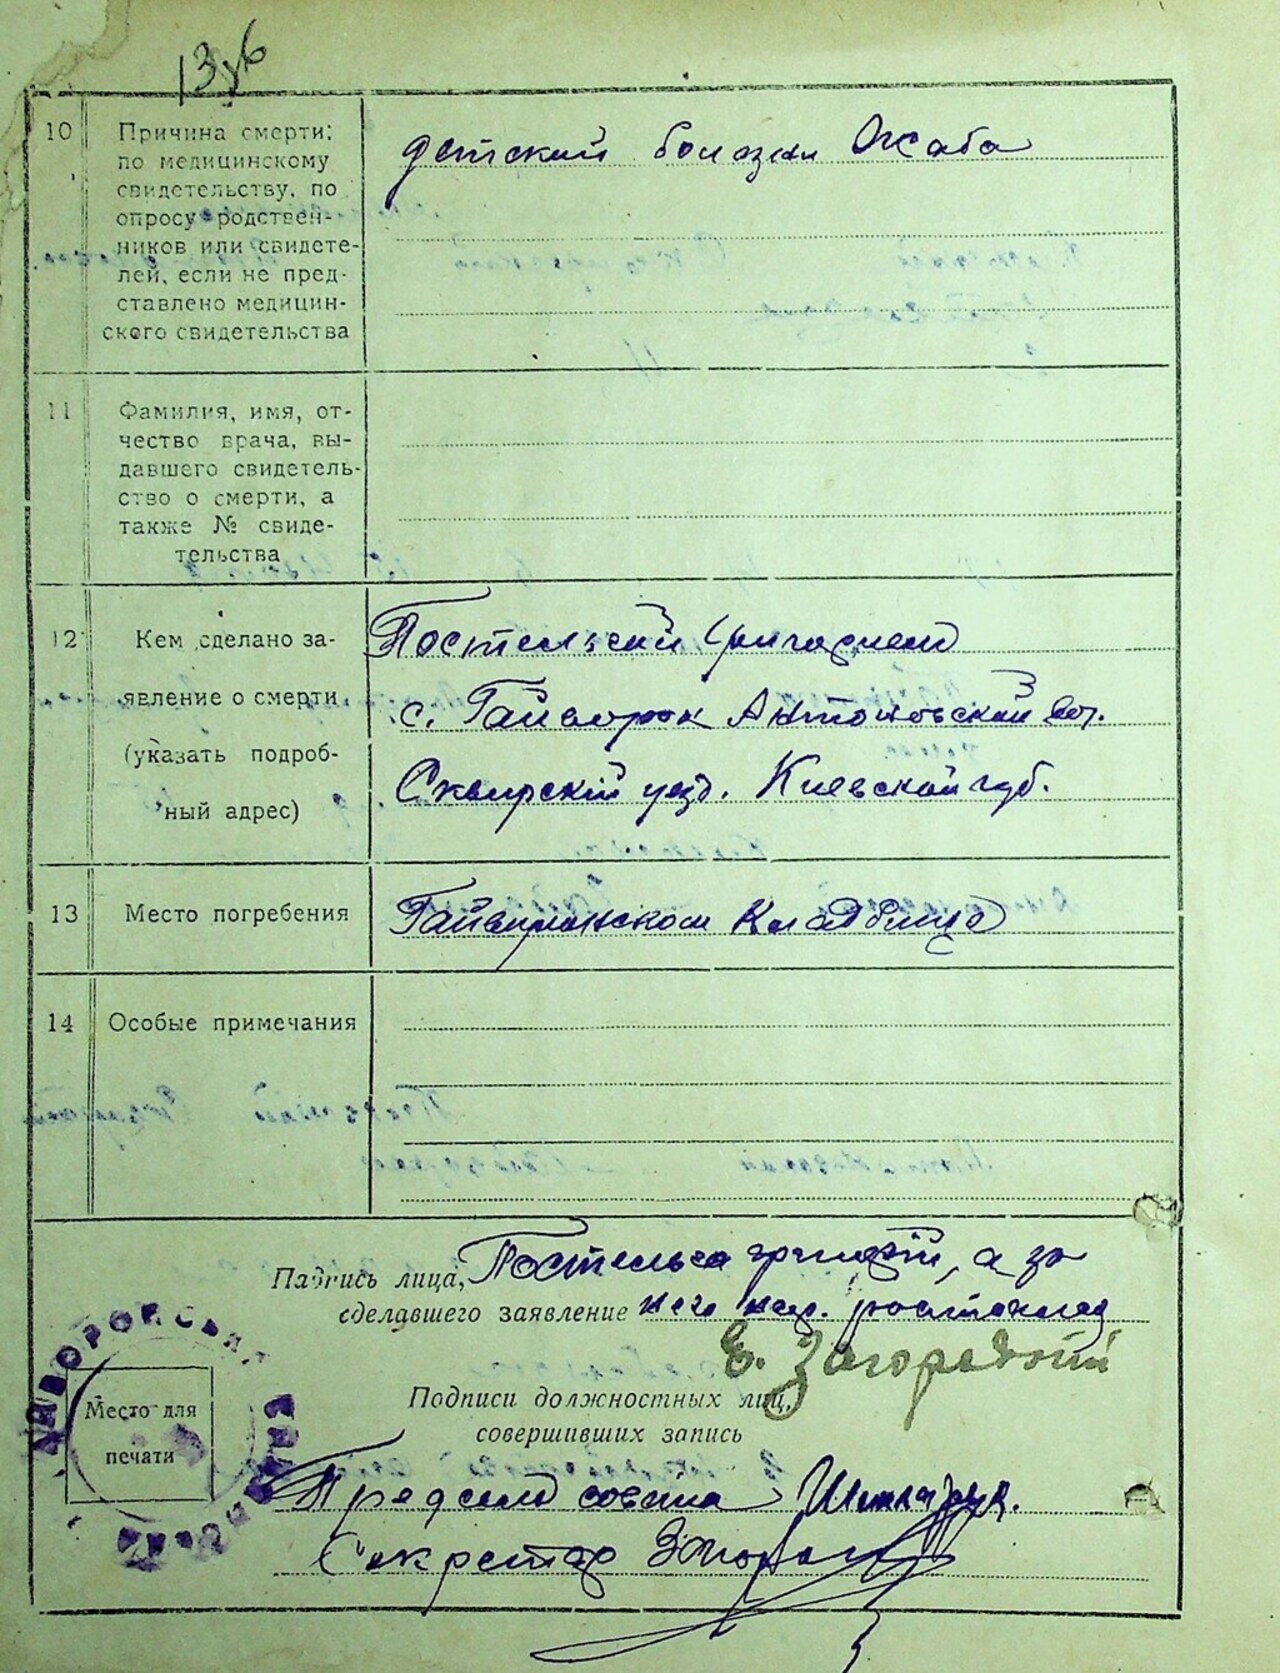 10
Причина смерти:
по медицинскому
свидетельству, по
опросу родствен-
ников или свидете-
лей, если не пред-
ставлено медицин-
ского свидетельства
детский болезни Жаба
11
Фамилия, имя, от-
чество врача, вы-
давшего свидетель-
ство о смерти, а
также № свиде-
тельства
12
Кем сделано за-
явление о смерти
(указать подроб-
ный адрес)
Постельский
с. Гайворок Антоновской вол.
Сквирскій уезд. Киевской губ.
13
Место погребения
Гайворонском Кладбище
14
Особые примечания
Подпись лица,
сделавшего заявление
а за
него
Подписи должностных лиц,
совершивших запись
Место для
печати
Предсельсовета
Секретар